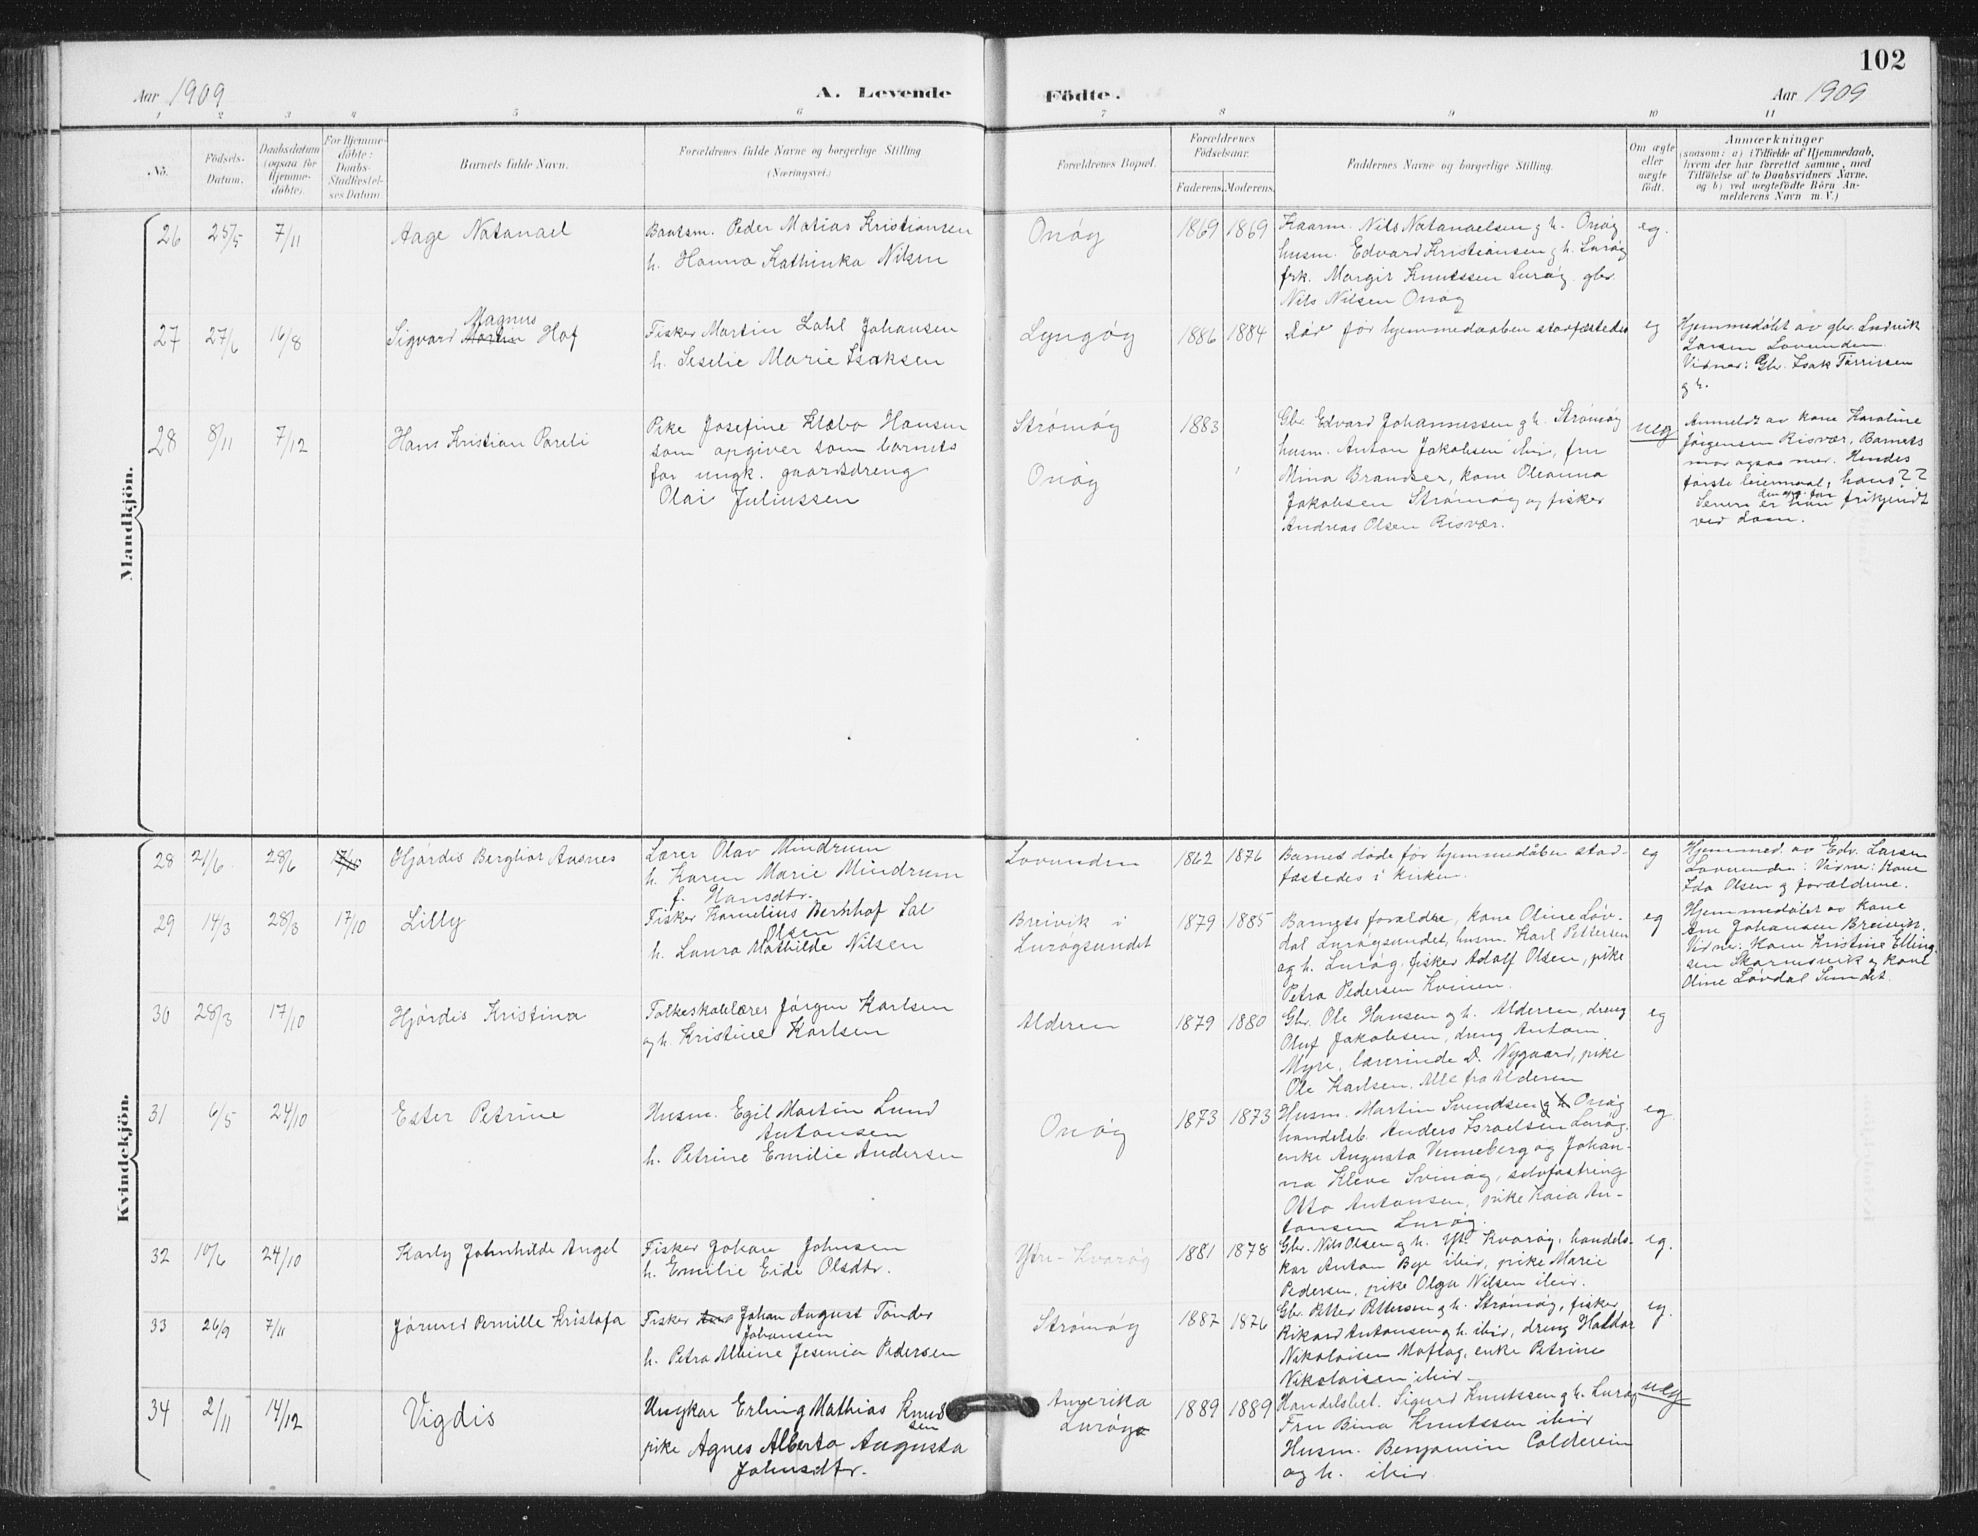 102
Aar 1909
A. Levende Födte.
Aar 1909
1 2 3 4 5 6 7 8 9 10 11
No.
Födsels-
Datum.
Daabsdatum
(ogsaa for
Hjemme-
døbte).
For Hjemme-
døbte:
Daabs-
Stadfæstel-
ses Datum.
Barnets fulde Navn.
Forældrenes fulde Navne og borgerlige Stilling
(Næringsvei.)
Forældrenes Bopæl.
Forældrenes
Födselsaar.
Faderens. Moderens.
Faddernes Navne og borgerlige Stilling.
Om ægte
eller
uægte
födt.
Anmærkninger
(saasom: a) i Tilfælde af Hjemmedaab,
hvem der har forrettet samme, med
Tilföielse af to Daabsvidners Navne.
og b) ved uægtefödte Börn An-
melderens Navn m. V.)
Mandkjön.
26 25/5 7/11
Aage Natanael
Baatsm. Peder Matias Kristiansen
h. Hanna Kathinka Nilsen
Onøy
1869 1869
Kaarm. Nils Natanaelsen g h. Onøy
husm. Edvard Kristiansen g h. Lurøy
frk. Margit Knutssen Lurøy. gbr.
Nils Nilsen Onøy
eg.
27 27/6 16/8
Magnus
Sigvard Martin Hof
Fisker Martin Lahl Johansen
h. Sesilie Marie Isaksen
Lyngøy
1886 1884
Død før hjemmedaaben stadfæstedes
eg
Hjemmedøbt av gbr. Ludvik
Larsen Lovunden.
Vidner: Gbr. Isak Tørrissen
g h.
28 8/11 7/12
Hans Kristian Pareli
Pike Josefine Klæbo Hansen
som opgiver som barnets
far ungk. gaardsdreng
Olai Juliussen
Strømøy
Onøy
1883
Gbr. Edvard Johannessen g h. Strømøy
husm. Anton Jakobsen ibid, fru
Mina Brandser, kone Oleanna
Jakobsen Strømøy og fisker
Andreas Olsen Risvær.
ueg
Anmeldt av kone Karoline
Jørgensen Risvær. Barnets
mor ogsaa mer. Hendes
første leiermaal, hans??
Senere er han frikjendt
ved Dom.
Kvindekjön.
28 21/6 28/6 17/10
Hjørdis Bergliot Aasnes
Lærer Olav Mindrum
h. Karen Marie Mindrum
f. Hansdtr.
Lovunden
1862 1876
Barnet døde før hjemmedåben stad-
fæstedes i kirken.
eg
Hjemmed. av Edv. Larsen
Lovunden: Vidne: Kone
Ida Olsen g forældrene.
29 14/3 28/3 17/10
Lilly
Fisker Kornelius Berkhof Sal
Olsen
h. Laura Mathilde Nilsen
Breivik i
Lurøysundet
1879 1885
Barnets forældre, kone Oline Løv-
dal Lurøysundet, husm. Karl Pettersen
og h. Lurøy, fisker Adolf Olsen, pike
Petra Pedersen Kvinen.
eg
Hjemmedøbt av kone
Ane Johansen Breivik.
Vidne: Kone Kristine Elling-
sen Skarmsvik g kone
Oline Løvdal Sundet.
30 28/3 17/10
Hjørdis Kristina
Folkeskolelærer Jørgen Karlsen
og h. Kristine Karlsen
Alderen
1879 1880
Gbr. Ole Hansen og h. Alderen, dreng
Oluf Jakobsen, dreng Antoni
Myre, lærerinde D. Nygaard, pike
Ole Karlsen. Alle fra Alderen
eg
31 6/5 24/10
Ester Petrine
Husm. Egil Martin Lund
Antonsen
h. Petrine Emilie Andersen
Onøy
1873 1873
Husm. Martin Svendsen g h Onøy
handelsb. Anders Israelsen Lurøy,
enke Augusta Venneberg og Johan-
na Kleve Svinøy, selvfostring
Otto Antonsen, pike Kaia An-
tonsen Lurøy.
eg.
32 10/6 24/10
Karly Johnhilde Angel
Fisker Johan Johnsen
h. Emilie Eide Olsdtr.
Ytre-Kvarøy
1881 1878
Gbr. Nils Olsen g h. Ytre Kvarøy, handels-
kar Anton Bye ibid, pike Marie
Pedersen, pike Olga Nilsen ibid.
eg.
33 26/9 7/11
Jørund Pernille Kristofa
Fisker Johan August Tønder
Johansen
h. Petra Albine Jesenia Pedersen
Strømøy
1887 1876
Gbr. Petter Pettersen g h. Strømøy, fisker
Rikard Antonsen g h. ibid, dreng Haldor
Nikolaisen Moflag, enke Petrine
Nikolaisen ibid.
eg.
34 2/11 14/12
Vigdis
Ungkar Erling Mathias Knud
sen
pike Agnes Alberta Augusta
Johnsdtr.
Amerika
Lurøy
1889 1889
Handelsbet. Sigurd Knutssen g h. Lurøy
Fru Bina Knutssen ibid
Husm. Benjamin Calderein
og h. ibid
ueg